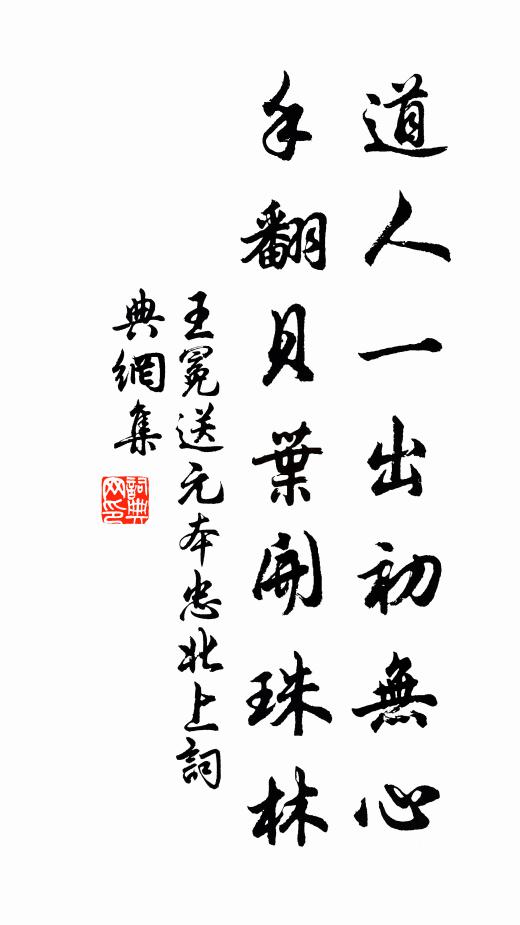 道人一出初無心
手翻貝葉開珠林
王冕送元本忠北上詞
典網集
詞典网印